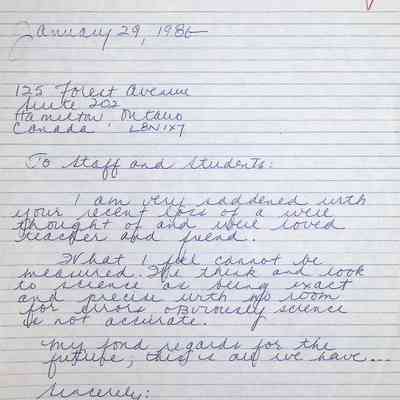 January 29, 1986
125 Forest Avenue
Suite 202
Hamilton, Ontario
Canada L8N1X7
To Staff and Students:
I am very saddened with
your recent loss of a well
thought of and well loved
teacher and friend.
What I feel cannot be
measured. We think and look
to science as being exact
and precise with no room
for errors obviously science
is not accurate.
My fond regards for the
future, this is all we have...
Sincerely: